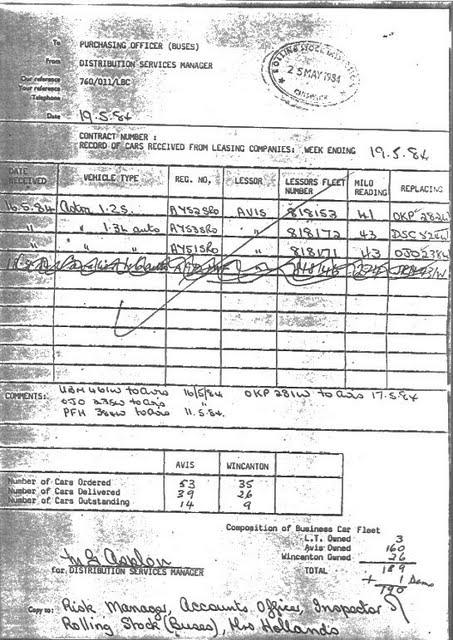 To PURCHASING OFFICER (BUSES)
From DISTRIBUTION SERVICES MANAGER
Our reference 760/011/LBC
Your reference
Telephone
25 MAY 1984
CHISWICK
Date 19.5.84
CONTRACT NUMBER :
RECORD OF CARS RECEIVED FROM LEASING COMPANIES: WEEK ENDING 19.5.84
DATE RECEIVED VEHICLE TYPE REG. NO, LESSOR LESSORS FLEET NUMBER MILO READING REPLACING
16.5.84 Astra 1.2S. A752SRO AVIS 818153 41 OKP 282W
" " 1.3L auto A753SRO " 818172 43 DSC 524W
" " " A751SRO " 818171 43 OJO 238W
COMMENTS: UBH 461W to Avis 16/5/84 OKP 281W to Avis 17.5.84
OJO 235W to Avis "
PFH 384W to Avis 11.5.84.
AVIS WINCANTON
Number of Cars Ordered 53 35
Number of Cars Delivered 39 26
Number of Cars Outstanding 14 9
Composition of Business Car Fleet
L.T. Owned 3
Avis Owned 160
Wincanton Owned 26
TOTAL 189
+ 1 Demo
190
for DISTRIBUTION SERVICES MANAGER
Copy to: Risk Manager, Accounts Office, Inspector
Rolling Stock (Buses), Mrs Hollands